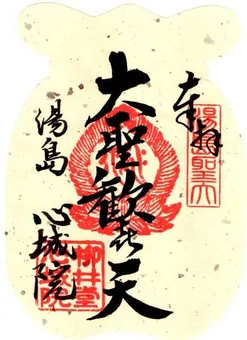 奉拝
湯島聖天
大聖歓喜天
湯島 心城院
柳井堂